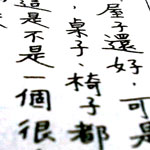 屋子還好，可是
，桌子、椅子都
這是不是一個很